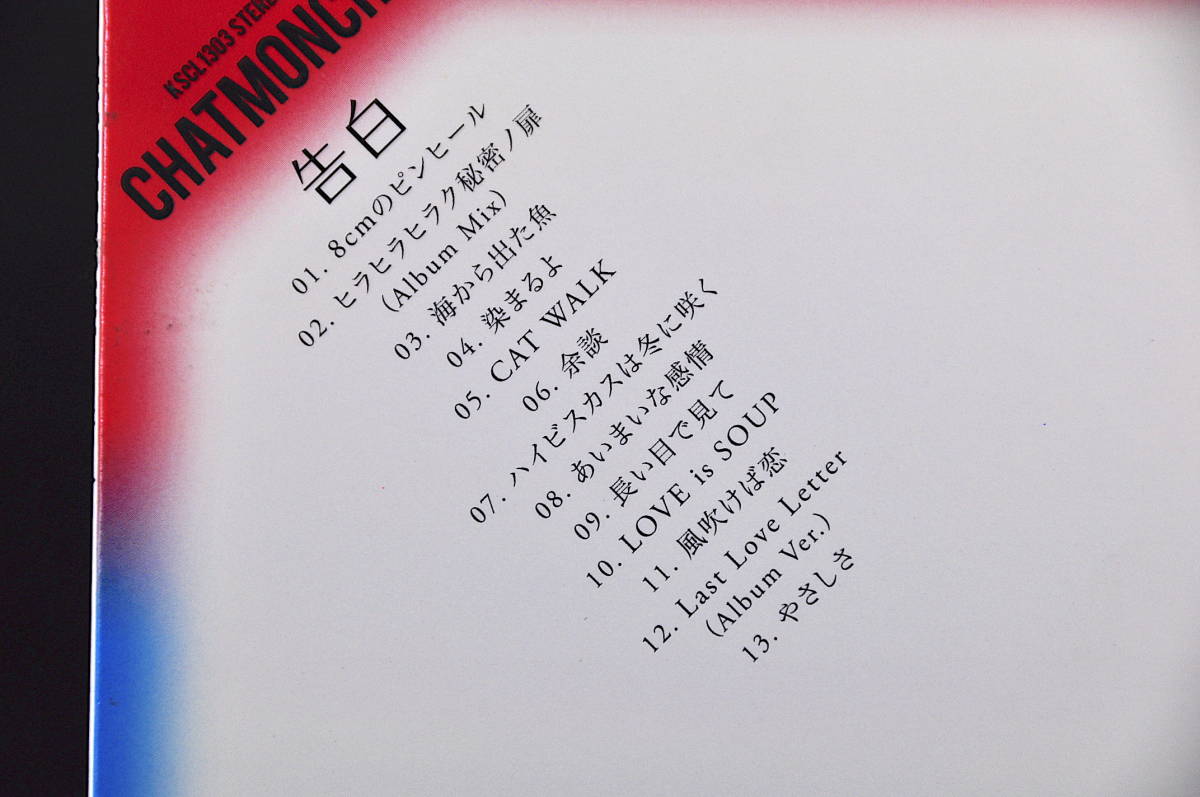 KSCL1303 STEREO
CHATMONCH
告白
01. 8cmのピンヒール
02. ヒラヒラヒラク秘密ノ扉
(Album Mix)
03. 海から出た魚
04. 染まるよ
05. CAT WALK
06. 余談
07. ハイビスカスは冬に咲く
08. あいまいな感情
09. 長い目で見て
10. LOVE is SOUP
11. 風吹けば恋
12. Last Love Letter
(Album Ver.)
13. やさしさ